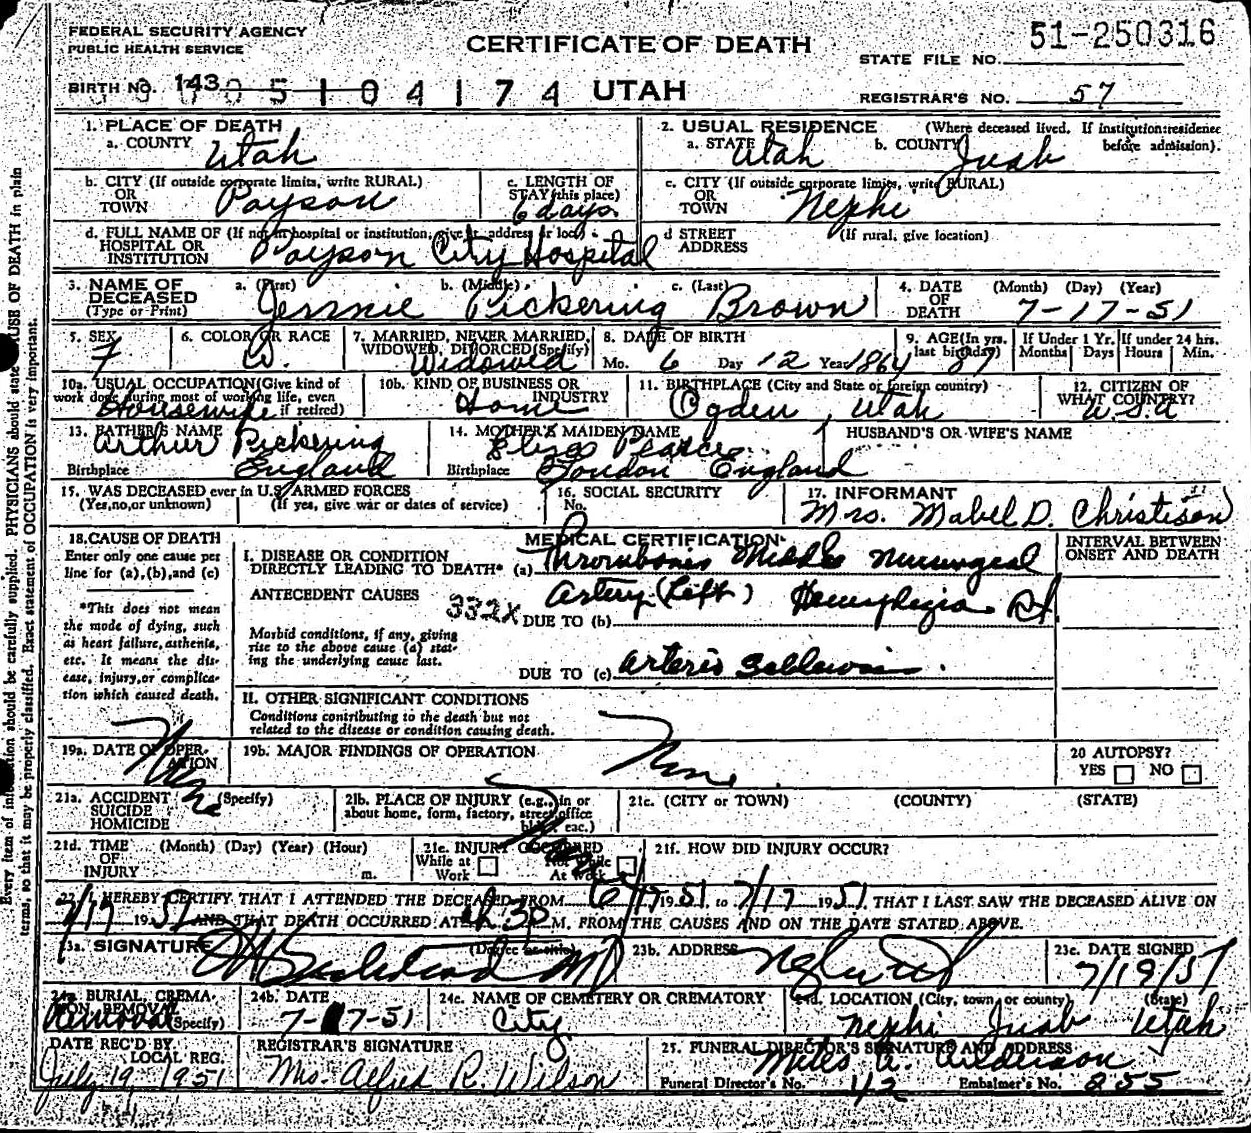 FEDERAL SECURITY AGENCY
PUBLIC HEALTH SERVICE
CERTIFICATE OF DEATH
51-250316
STATE FILE NO.
BIRTH NO. 143 05104174 UTAH
REGISTRAR'S NO. 57
1. PLACE OF DEATH
a. COUNTY Utah
2. USUAL RESIDENCE (Where deceased lived. If institution: residence before admission).
a. STATE Utah b. COUNTY Juab
b. CITY (If outside corporate limits, write RURAL)
OR
TOWN Payson
c. LENGTH OF
STAY (this place)
6 days
c. CITY (If outside corporate limits, write RURAL)
OR
TOWN Nephi
d. FULL NAME OF (If not in hospital or institution, give st. address or loc.)
HOSPITAL OR
INSTITUTION Payson City Hospital
d STREET
ADDRESS (If rural, give location)
3. NAME OF
DECEASED
(Type or Print)
a. (First) b. (Middle) c. (Last)
Jennie Pickering Brown
4. DATE
OF
DEATH
(Month) (Day) (Year)
7-17-51
5. SEX
F
6. COLOR OR RACE
W.
7. MARRIED, NEVER MARRIED,
WIDOWED, DIVORCED (Specify)
Widowed
8. DATE OF BIRTH
Mo. 6 Day 12 Year 1864
9. AGE (In yrs.
last birthday) 87
If Under 1 Yr.
Months Days
If under 24 hrs.
Hours Min.
10a. USUAL OCCUPATION (Give kind of
work done during most of working life, even
if retired)
Housewife
10b. KIND OF BUSINESS OR
INDUSTRY
Home
11. BIRTHPLACE (City and State or foreign country)
Ogden, Utah
12. CITIZEN OF
WHAT COUNTRY?
U.S.A
13. FATHER'S NAME
Arthur Pickering
Birthplace England
14. MOTHER'S MAIDEN NAME
Eliza Pearce
Birthplace London England
HUSBAND'S OR WIFE'S NAME
15. WAS DECEASED ever in U.S. ARMED FORCES
(Yes, no, or unknown) (If yes, give war or dates of service)
16. SOCIAL SECURITY
No.
17. INFORMANT
Mrs. Mabel D. Christison
18. CAUSE OF DEATH
Enter only one cause per
line for (a), (b), and (c)
*This does not mean
the mode of dying, such
as heart failure, asthenia,
etc. It means the dis-
ease, injury, or complica-
tion which caused death.
MEDICAL CERTIFICATION
INTERVAL BETWEEN
ONSET AND DEATH
I. DISEASE OR CONDITION
DIRECTLY LEADING TO DEATH* (a) Thrombosis Middle Meningeal
ANTECEDENT CAUSES
Artery (Left) Hemiplegia Rt.
332X
DUE TO (b)
Morbid conditions, if any, giving
rise to the above cause (a) stat-
ing the underlying cause last.
DUE TO (c) Arterio Sclerosis
II. OTHER SIGNIFICANT CONDITIONS
Conditions contributing to the death but not
related to the disease or condition causing death.
19a. DATE OF OPER-
ATION
None
19b. MAJOR FINDINGS OF OPERATION
None
20 AUTOPSY?
YES NO
21a. ACCIDENT (Specify)
SUICIDE
HOMICIDE
21b. PLACE OF INJURY (e.g., in or
about home, form, factory, street, office
bldg., eac.)
21c. (CITY or TOWN) (COUNTY) (STATE)
21d. TIME (Month) (Day) (Year) (Hour)
OF
INJURY m.
21e. INJURY OCCURRED
While at
Work
Not While
At Work
21f. HOW DID INJURY OCCUR?
22. I HEREBY CERTIFY THAT I ATTENDED THE DECEASED FROM 6/17 1951 to 7/17 1951, THAT I LAST SAW THE DECEASED ALIVE ON
7/17 1951 AND THAT DEATH OCCURRED AT M. FROM THE CAUSES AND ON THE DATE STATED ABOVE.
23a. SIGNATURE (Degree or title) MD
23b. ADDRESS
23c. DATE SIGNED
7/19/51
24a BURIAL, CREMA-
TION, REMOVAL (Specify)
Removal
24b. DATE
7-17-51
24c. NAME OF CEMETERY OR CREMATORY
City
24d. LOCATION (City, town, or county) (State)
Nephi Juab Utah
DATE REC'D BY
LOCAL REG.
July 19 1951
REGISTRAR'S SIGNATURE
Mrs. Alfred R. Wilson
25. FUNERAL DIRECTOR'S SIGNATURE AND ADDRESS
Miles A. Anderson
Funeral Director's No. 42 Embalmer's No. 255
Every item of information should be carefully supplied. PHYSICIANS should state CAUSE OF DEATH in plain
terms, so that it may be properly classified. Exact statement of OCCUPATION is very important.